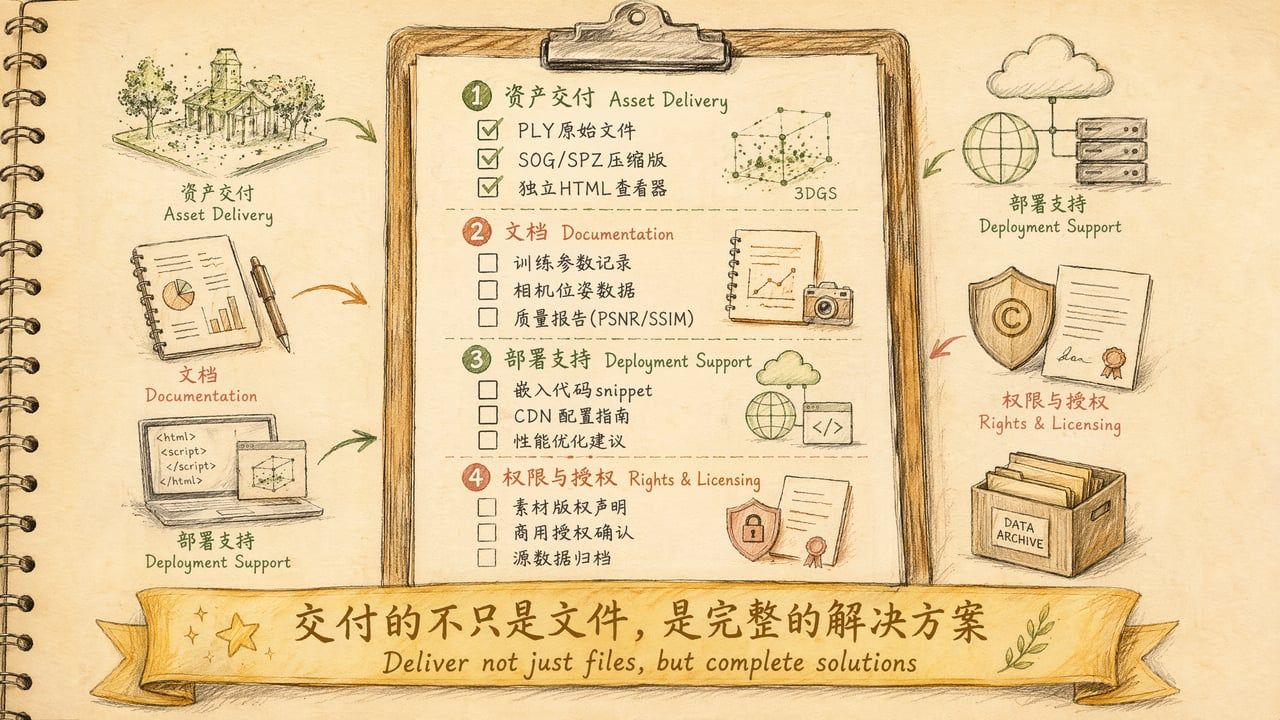 资产交付
Asset Delivery
文档
Documentation
<html>
<script>
</script>
</html>
部署支持
Deployment Support
1 资产交付 Asset Delivery
PLY原始文件
SOG/SPZ压缩版
独立HTML查看器
3DGS
2 文档 Documentation
训练参数记录
相机位姿数据
质量报告(PSNR/SSIM)
3 部署支持 Deployment Support
嵌入代码snippet
CDN 配置指南
性能优化建议
</>
4 权限与授权 Rights & Licensing
素材版权声明
商用授权确认
源数据归档
部署支持
Deployment Support
©
权限与授权
Rights & Licensing
DATA
ARCHIVE
交付的不只是文件，是完整的解决方案
Deliver not just files, but complete solutions